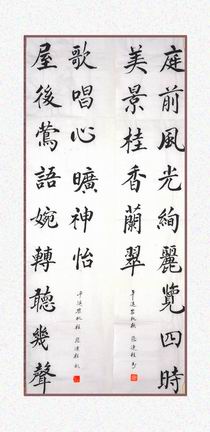 庭前風光絢麗覽四時
美景桂香蘭翠
歌唱心曠神怡
屋後鶯語婉轉聽幾聲